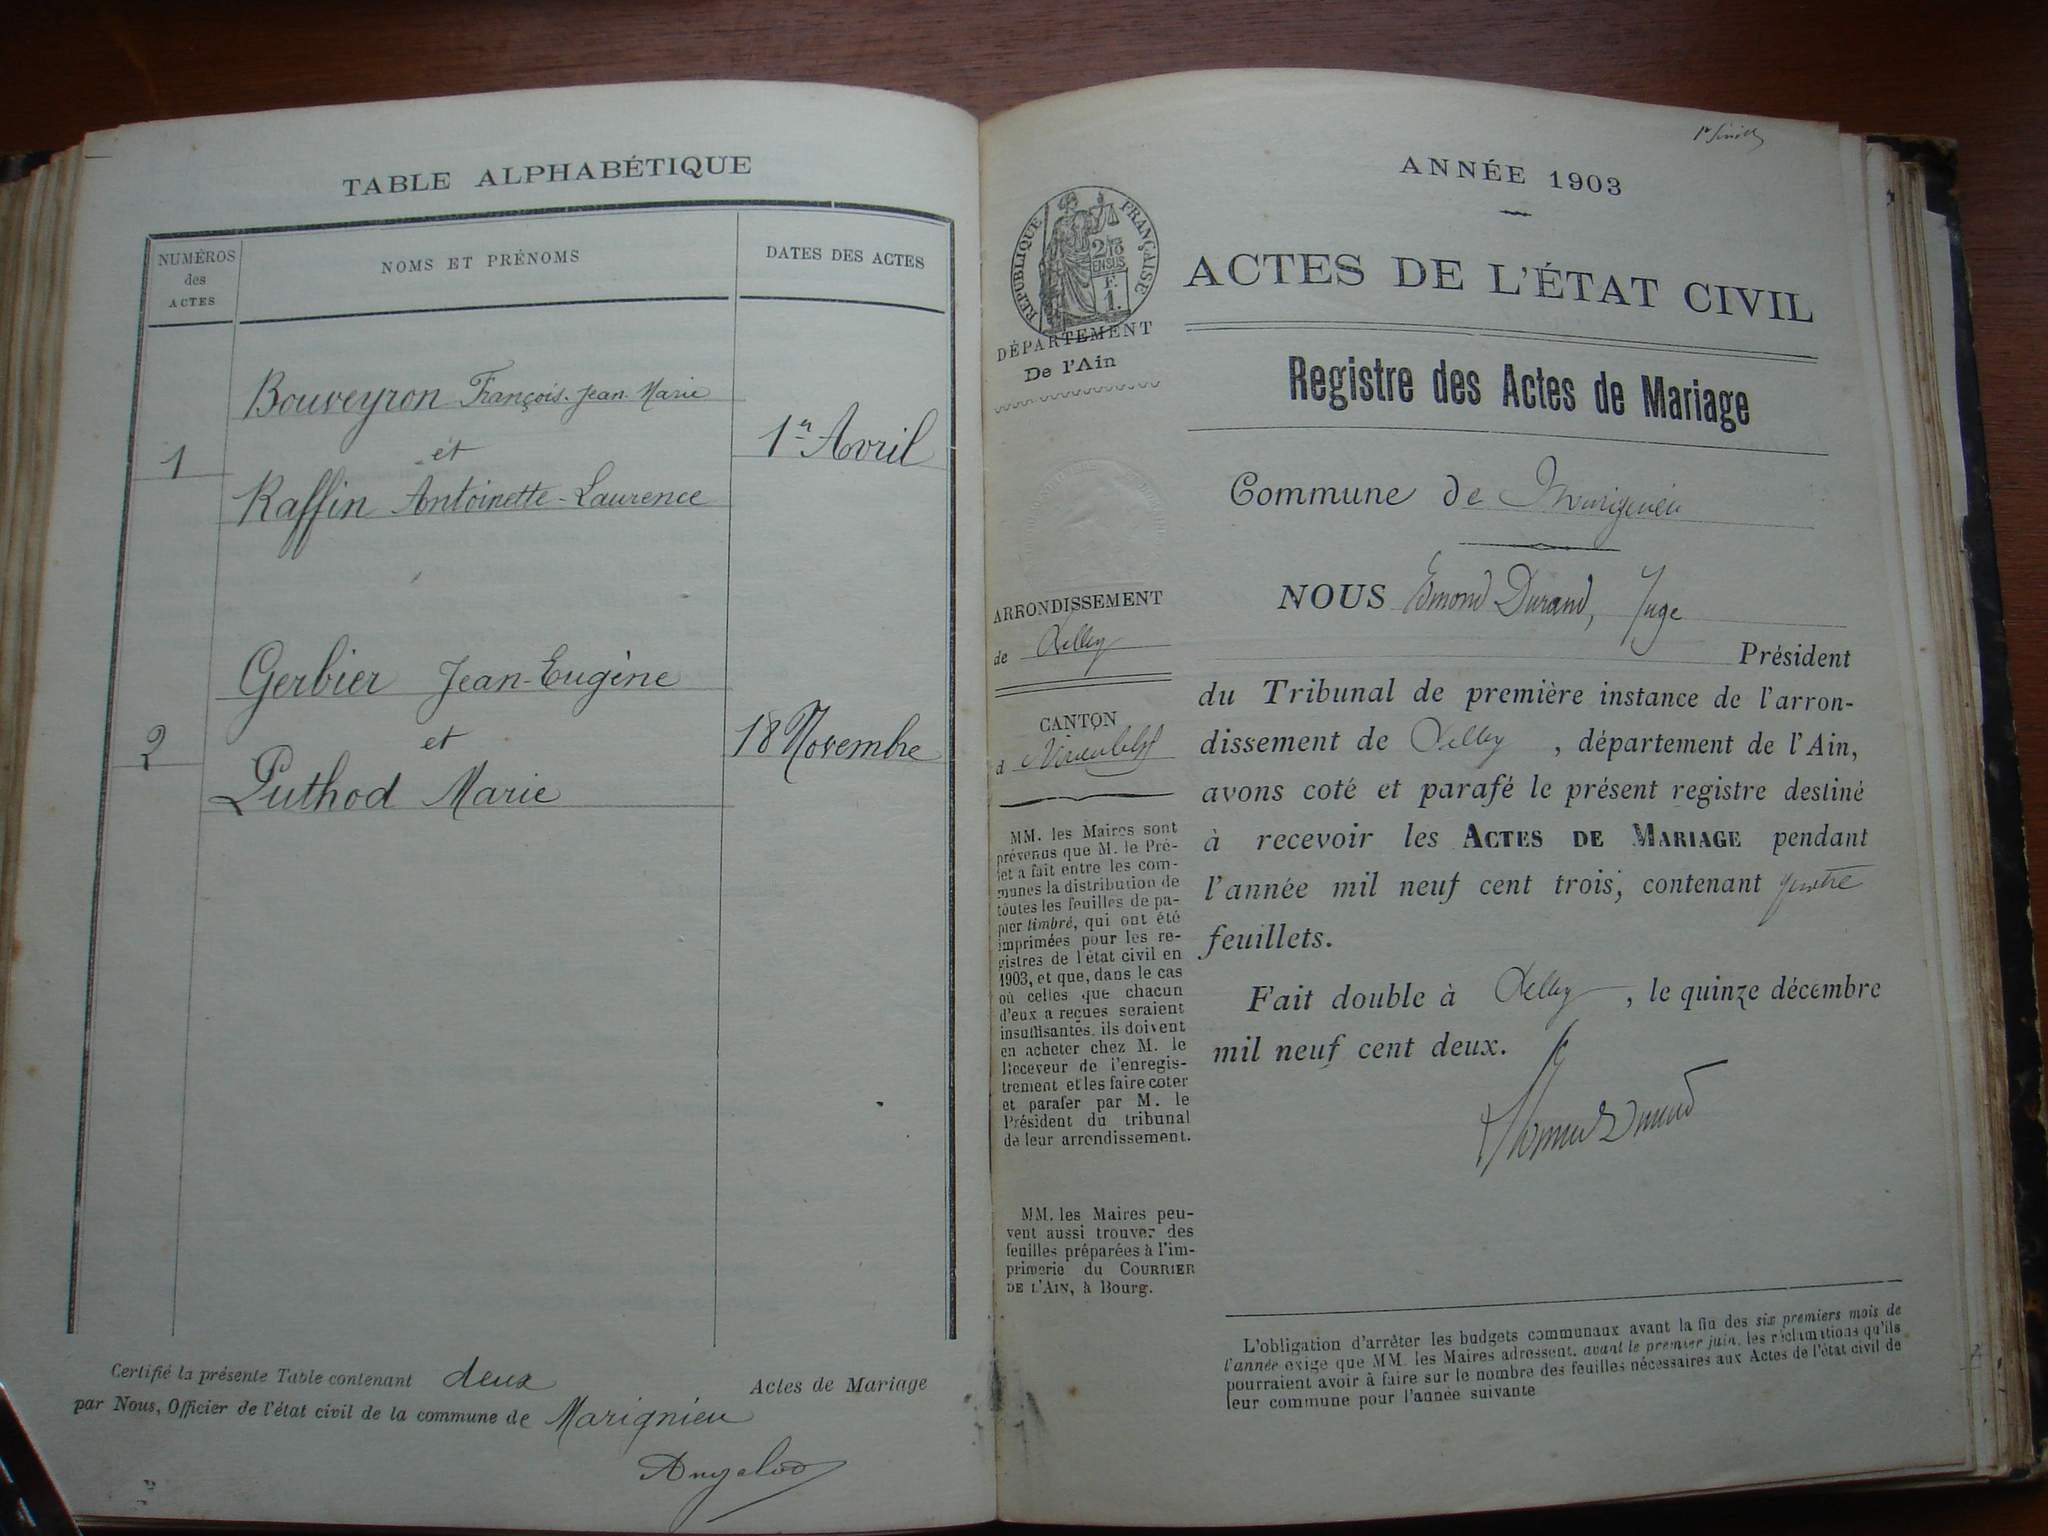 TABLE ALPHABÉTIQUE
NUMÉROS
des
ACTES
NOMS ET PRÉNOMS
DATES DES ACTES
Bouveyron François-Jean-Marie
et
1
1er Avril
Raffin Antoinette-Laurence
Gerbier Jean-Eugène
et
2
18 Novembre
Puthod Marie
Certifié la présente Table contenant deux Actes de Mariage
par Nous, Officier de l'état civil de la commune de Marignieu
1er
ANNÉE 1903
RÉPUBLIQUE FRANÇAISE
2/10
EN SUS
F.
1.
DÉPARTEMENT
De l'Ain
ACTES DE L'ÉTAT CIVIL
Registre des Actes de Mariage
Commune de Marignieu
ARRONDISSEMENT
de Belley
CANTON
d
MM. les Maires sont
prévenus que M. le Pré-
fet a fait entre les com-
munes la distribution de
toutes les feuilles de pa-
pier timbré, qui ont été
imprimées pour les re-
gistres de l'état civil en
1903, et que, dans le cas
où celles que chacun
d'eux a reçues seraient
insuffisantes, ils doivent
en acheter chez M. le
Receveur de l'enregis-
trement et les faire coter
et parafer par M. le
Président du tribunal
de leur arrondissement.
MM. les Maires peu-
vent aussi trouver des
feuilles préparées à l'im-
primerie du COURRIER
DE L'AIN, à Bourg.
NOUS Edmond Durand, Juge
Président
du Tribunal de première instance de l'arron-
dissement de Belley, département de l'Ain,
avons coté et parafé le présent registre destiné
à recevoir les ACTES DE MARIAGE pendant
l'année mil neuf cent trois, contenant quatre
feuillets.
Fait double à Belley, le quinze décembre
mil neuf cent deux.
L'obligation d'arrêter les budgets communaux avant la fin des six premiers mois de
l'année exige que MM. les Maires adressent, avant le premier juin, les réclamations qu'ils
pourraient avoir à faire sur le nombre des feuilles nécessaires aux Actes de l'état civil de
leur commune pour l'année suivante